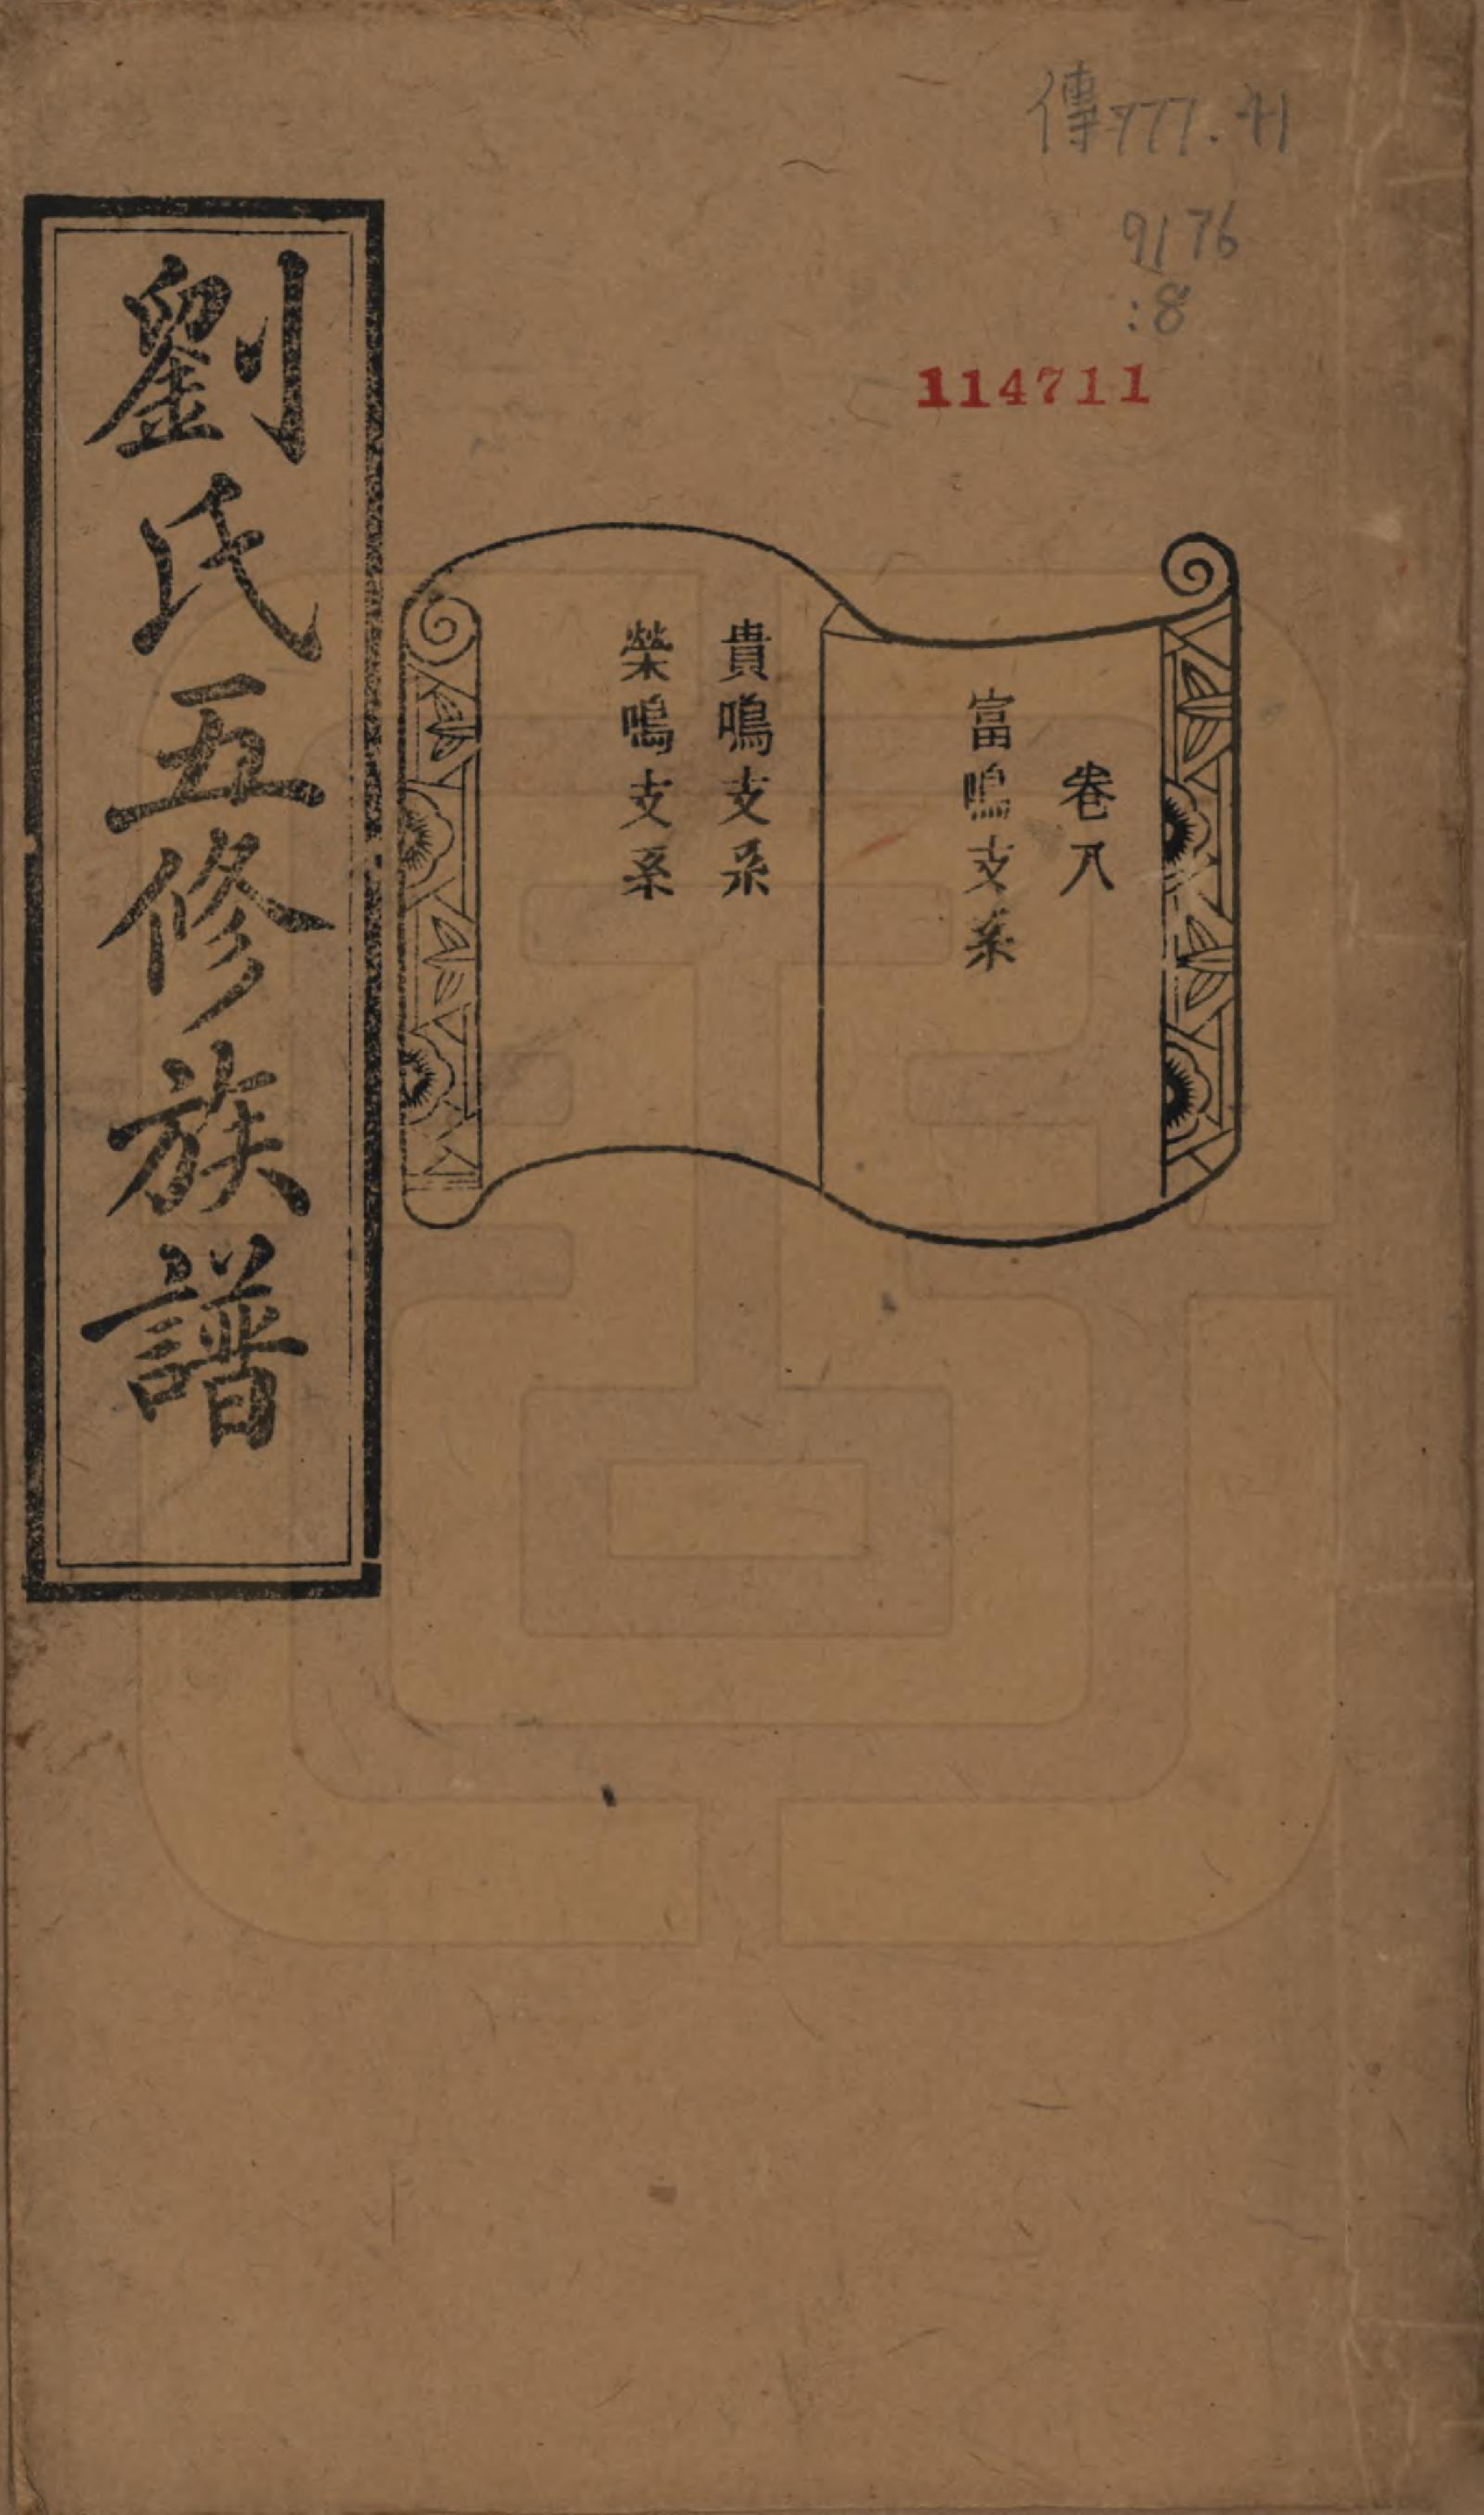 傳777.41
9176
:8
114711
卷八
富鳴支系
貴鳴支系
榮鳴支系
劉氏五修族譜